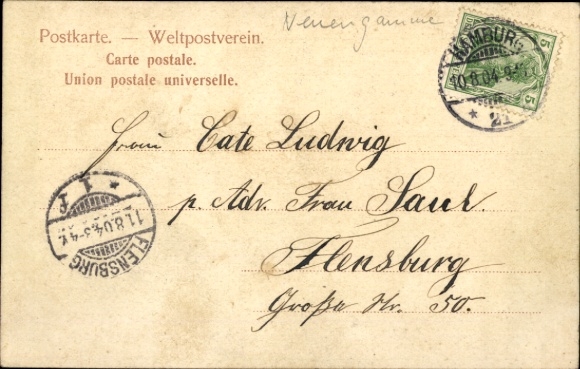 Neuengamme
Postkarte. — Weltpostverein.
Carte postale.
Union postale universelle.
HAMBURG
10.8.04.
* 21
5
5
Frau Cate Ludwig
p. Adr. Frau Saul.
Flensburg
Große Str. 50.
* 1 F
11.8.04.3-4
FLENSBURG